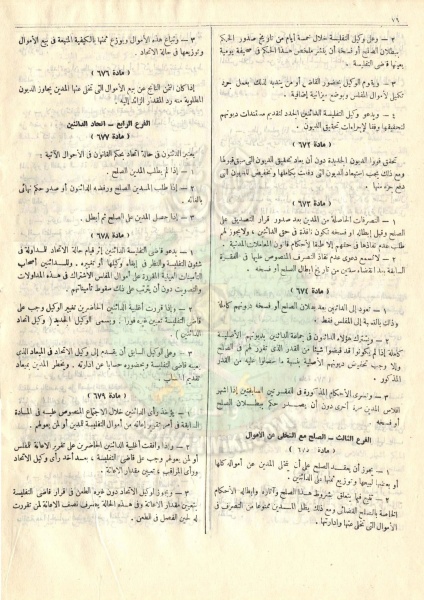 ٧٦
٢ - وعلى وكيل التفليسة خلال خمسة أيام من تاريخ صدور الحكم
ببطلان الصلح أو فسخه أن ينشر ملخص هذا الحكم في صحيفة يومية
يعينها قاضي التفليسة.
٣ - ويقوم الوكيل بحضور القاضي أو من يندبه لذلك بعمل جرد
تكميلي لأموال المفلس وبوضع ميزانية إضافية.
٤ - ويدعو وكيل التفليسة الدائنين الجدد لتقديم مستندات ديونهم
لتحقيقها وفقا لإجراءات تحقيق الديون.
(مادة ٦٧٢)
تحقق فورا الديون الجديدة دون أن يعاد تحقيق الديون التي سبق قبولها
ومع ذلك يجب استبعاد الديون التي دفعت بكاملها وتخفيض الديون التي
دفع جزء منها.
(مادة ٦٧٣)
١ - التصرفات الحاصلة من المدين بعد صدور قرار التصديق على
الصلح وقبل إبطاله أو فسخه تكون نافذة في حق الدائنين، ولا يجوز لهم
طلب عدم نفاذها في حقهم إلا طبقا لأحكام قانون المعاملات المدنية.
٢ - ولا تسمع دعوى عدم نفاذ التصرف المنصوص عليها في الفقرة
السابقة بعد انقضاء سنتين من تاريخ إبطال الصلح أو فسخه.
(مادة ٦٧٤)
١ - تعود إلى الدائنين بعد بطلان الصلح أو فسخه ديونهم كاملة
وذلك بالنسبة إلى المفلس فقط.
٢ - ويشترك هؤلاء الدائنون في جماعة الدائنين بديونهم الأصلية
كاملة إذا لم يكونوا قد قبضوا شيئا من القدر الذي تقرر لهم في الصلح
وإلا وجب تخفيض ديونهم الأصلية بنسبة ما حصلوا عليه من القدر
المذكور.
٣ - وتسري الأحكام المذكورة في الفقرتين السابقتين إذا أشهر
إفلاس المدين مرة أخرى دون أن يصدر حكم ببطلان الصلح
أو فسخه.
الفرع الثالث - الصلح مع التخلي عن الأموال
(مادة ٦٧٥)
١ - يجوز أن يعقد الصلح على أن يتخلى المدين عن أمواله كلها
أو بعضها لبيعها وتوزيع ثمنها على الدائنين.
٢ - تتبع فيما يتعلق بشروط هذا الصلح وآثاره وإبطاله الأحكام
الخاصة بالصلح القضائي ومع ذلك يظل المدين ممنوعا من التصرف في
الأموال التي تخلى عنها وإدارتها.
٣ - وتباع هذه الأموال ويوزع ثمنها بالكيفية المتبعة في بيع الأموال
وتوزيعها في حالة الاتحاد.
(مادة ٦٧٦)
إذا كان الثمن الناتج عن بيع الأموال التي تخلى عنها المدين يجاوز الديون
المطلوبة منه رد المقدار الزائد إليه.
الفرع الرابع - اتحاد الدائنين
(مادة ٦٧٧)
يعتبر الدائنون في حالة اتحاد بحكم القانون في الأحوال الآتية:
١ - إذا لم يطلب المدين الصلح.
٢ - إذا طلب المدين الصلح ورفضه الدائنون أو صدر حكم نهائي
بإدانته.
٣ - إذا حصل المدين على الصلح ثم أبطل.
(مادة ٦٧٨)
١ - يدعو قاضي التفليسة الدائنين إثر قيام حالة الاتحاد للمداولة في
شئون التفليسة والنظر في إبقاء وكيلها أو تغييره. وللدائنين أصحاب
التأمينات العينية المقررة على أموال المفلس الاشتراك في هذه المداولات
والتصويت دون أن يترتب على ذلك سقوط تأميناتهم.
٢ - وإذا قررت أغلبية الدائنين الحاضرين تغيير الوكيل وجب على
قاضي التفليسة تعيين غيره فورا. ويسمى الوكيل الجديد (وكيل اتحاد
الدائنين).
٣ - وعلى الوكيل السابق أن يقدم إلى وكيل الاتحاد في الميعاد الذي
يعينه قاضي التفليسة وبحضوره حسابا عن ادارته. ويخطر المدين بميعاد
تقديم الحساب.
(مادة ٦٧٩)
١ - يؤخذ رأي الدائنين خلال الاجتماع المنصوص عليه في المادة
السابقة في أمر تقرير إعانة من أموال التفليسة للمدين أو لمن يعولهم.
٢ - وإذا وافقت أغلبية الدائنين الحاضرين على تقرير الاعانة للمفلس
أو لمن يعولهم وجب على قاضي التفليسة، بعد أخذ رأي وكيل الاتحاد
ورأي المراقب، تعيين مقدار الاعانة.
٣ - ويجوز لوكيل الاتحاد دون غيره الطعن في قرار قاضي التفليسة
بتعيين مقدار الاعانة وفي هذه الحالة يصرف نصف الاعانة لمن تقررت
له لحين الفصل في الطعن.